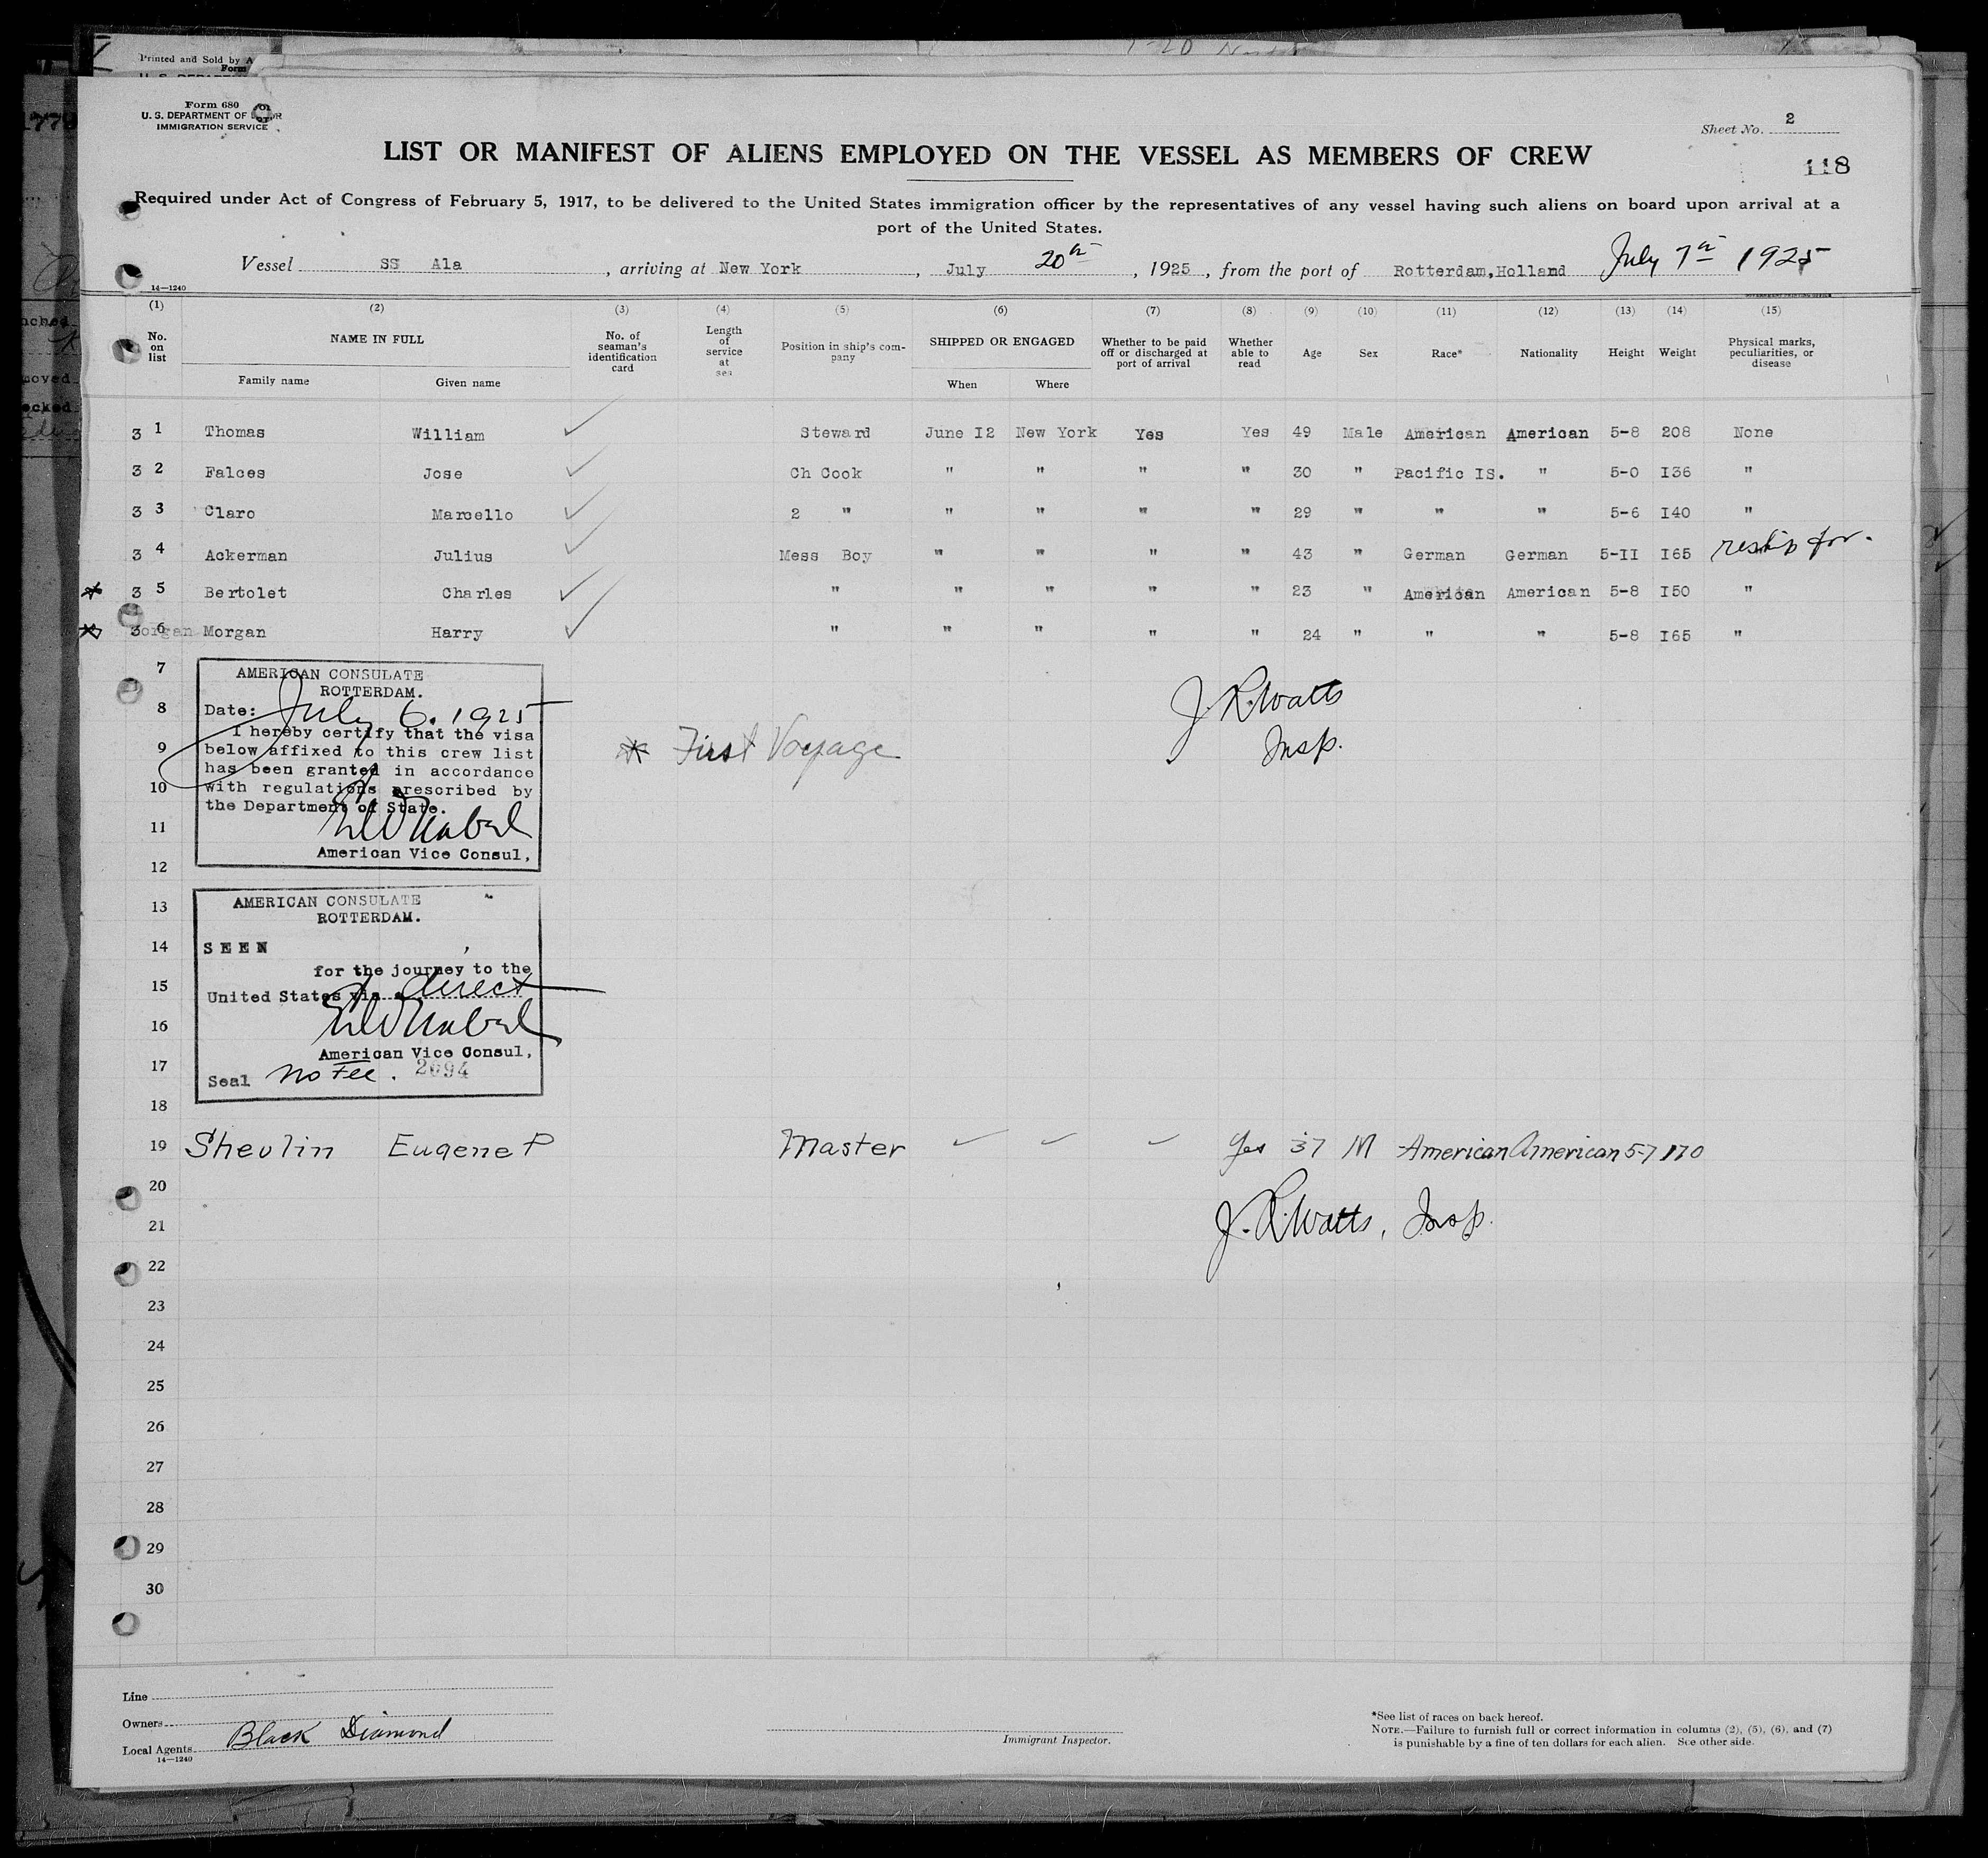 Printed and Sold by A
Form
Form 680
U. S. DEPARTMENT OF
IMMIGRATION SERVICE
Sheet No. 2
LIST OR MANIFEST OF ALIENS EMPLOYED ON THE VESSEL AS MEMBERS OF CREW
118
Required under Act of Congress of February 5, 1917, to be delivered to the United States immigration officer by the representatives of any vessel having such aliens on board upon arrival at a
port of the United States.
Vessel SS Ala, arriving at New York, July 20th, 1925, from the port of Rotterdam, Holland July 7th 1925
14—1240
(1) (2) (3) (4) (5) (6) (7) (8) (9) (10) (11) (12) (13) (14) (15)
No. on list NAME IN FULL Family name Given name No. of seaman's identification card Length of service at sea Position in ship's company SHIPPED OR ENGAGED When Where Whether to be paid off or discharged at port of arrival Whether able to read Age Sex Race* Nationality Height Weight Physical marks, peculiarities, or disease
3 1 Thomas William ✓ Steward June I2 New York Yes Yes 49 Male American American 5-8 208 None
3 2 Falces Jose ✓ Ch Cook " " " " 30 " Pacific IS. " 5-0 I36 "
3 3 Claro Marcello ✓ 2 " " " " " 29 " " " 5-6 I40 "
3 4 Ackerman Julius ✓ Mess Boy " " " " 43 " German German 5-II I65 reship for.
* 3 5 Bertolet Charles ✓ " " " " " 23 " American American 5-8 I50 "
* 3 6 Morgan Harry ✓ " " " " " 24 " " " 5-8 I65 "
7
8
9
10
11
12
AMERICAN CONSULATE
ROTTERDAM.
Date: July 6. 1925
I hereby certify that the visa
below affixed to this crew list
has been granted in accordance
with regulations prescribed by
the Department of State.
American Vice Consul,
* First Voyage
J. R. Watts
Insp.
13
14
15
16
17
18
AMERICAN CONSULATE
ROTTERDAM.
SEEN
for the journey to the
United States via direct
American Vice Consul,
Seal No Fee. 2694
19 Shevlin Eugene P Master ✓ ✓ ✓ Yes 37 M American American 5-7 170
20
21
J. R. Watts, Insp.
22
23
24
25
26
27
28
29
30
Line
Owners
Local Agents Black Diamond
14—1240
Immigrant Inspector.
*See list of races on back hereof.
NOTE.—Failure to furnish full or correct information in columns (2), (5), (6), and (7)
is punishable by a fine of ten dollars for each alien. See other side.